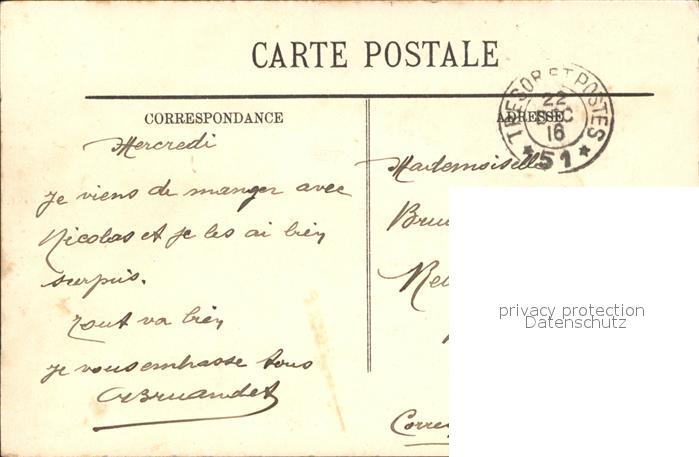 CARTE POSTALE
TRESOR ET POSTES
22
DEC
16
* 51 *
CORRESPONDANCE
ADRESSE
Mercredi
Je viens de manger avec
Nicolas et je les ai bien
surpris.
Tout va bien
Je vous embrasse tous
Bruandet
Mademoiselle
privacy protection
Datenschutz